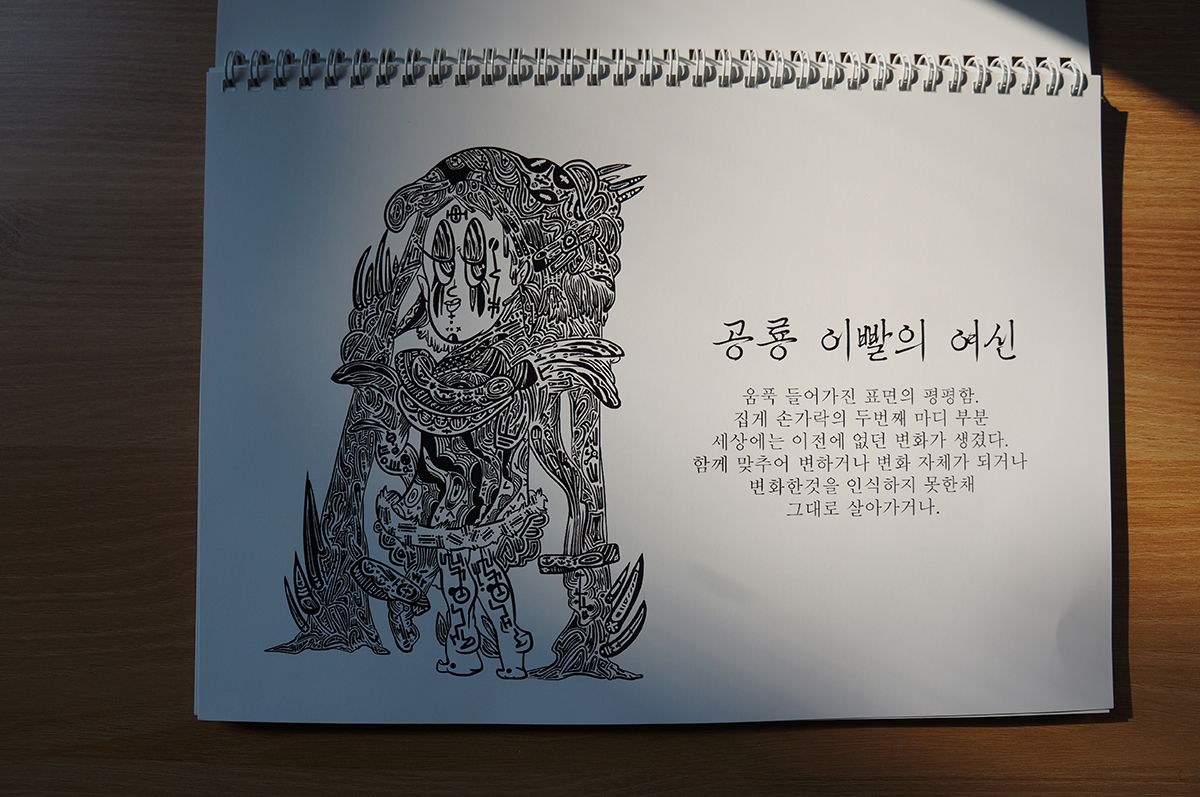 공룡 이빨의 여신
움푹 들어가진 표면의 평평함.
집게 손가락의 두번째 마디 부분
세상에는 이전에 없던 변화가 생겼다.
함께 맞추어 변하거나 변화 자체가 되거나
변화한것을 인식하지 못한채
그대로 살아가거나.